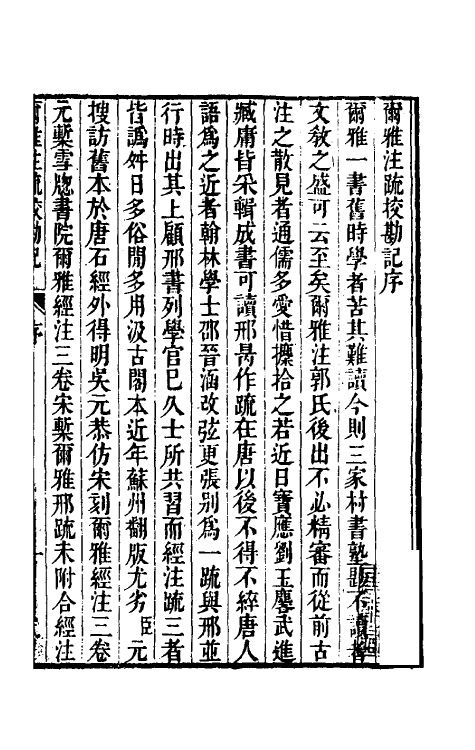 爾雅注疏挍勘記序
爾雅一書舊時學者苦其難讀今則三家村書塾尟不讀者
文敎之盛可云至矣爾雅注郭氏後出不必精審而從前古
注之散見者通儒多愛惜攟拾之若近日寶應劉玉麐武進
臧庸皆采輯成書可讀邢昺作疏在唐以後不得不綷唐人
語爲之近者翰林學士邵晉涵改弦更張别爲一疏與邢並
行時出其上顧邢書列學官已久士所共習而經注疏三者
皆譌舛日多俗閒多用汲古閣本近年蘇州翻版尤劣臣元
搜訪舊本於唐石經外得明吳元恭仿宋刻爾雅經注三卷
元槧雪牕書院爾雅經注三卷宋槧爾雅邢疏未附合經注
爾雅注疏挍勘記 序